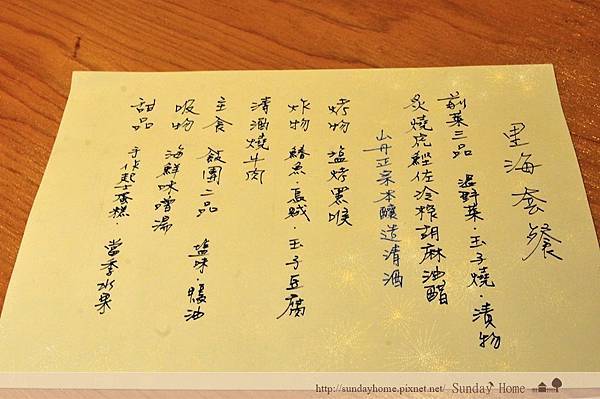 里海套餐
前菜三品 溫野菜·玉子燒·漬物
炙燒虎鰹佐冷榨胡麻油醋
山丹正宗本釀造清酒
烤物 塩烤黑喉
炸物 魚·烏賊·玉子豆腐
清酒燒牛肉
主食 飯團二品 塩味·油
吸物 海鮮味噌湯
甜品 手作起士蛋糕·當季水果
http://sundayhome.pixnet.net/ Sunday Home